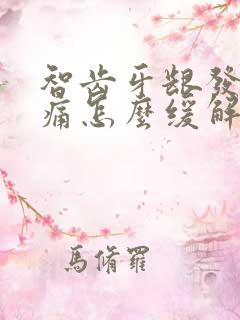 智齿牙龈發
痛怎麽缓解
馬脩羅